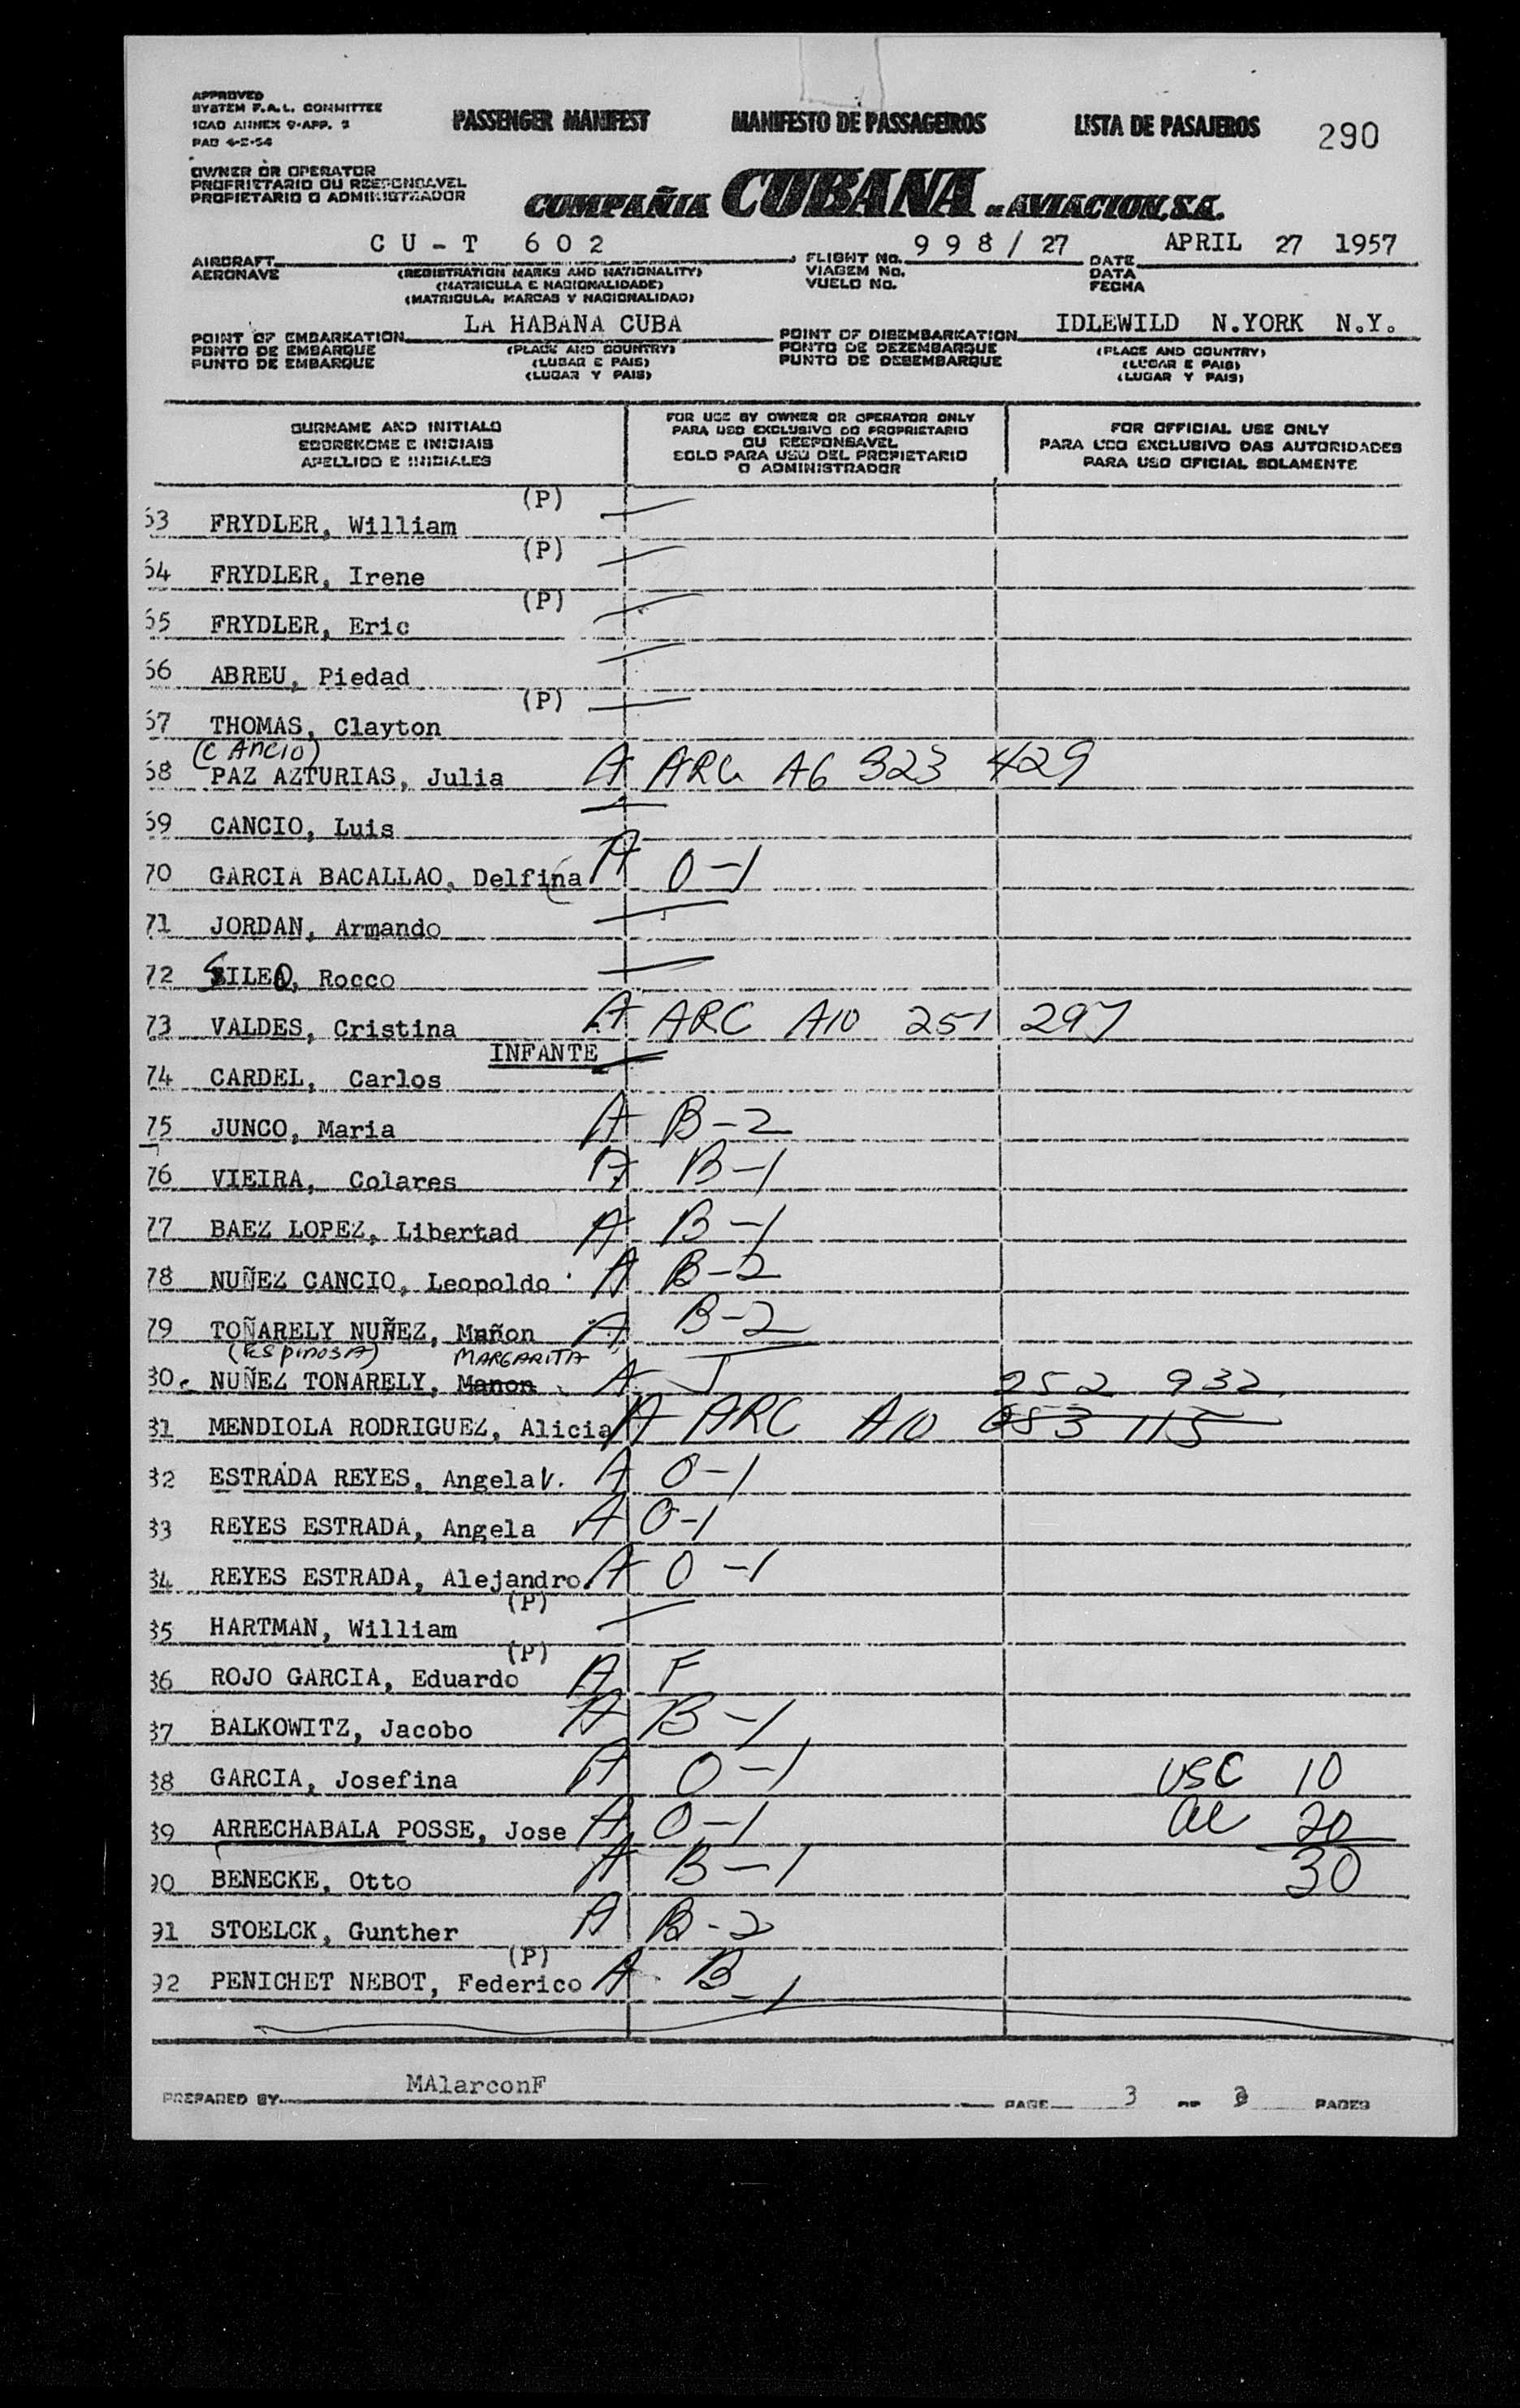 APPROVED
SYSTEM F.A.L. COMMITTEE
ICAO ANNEX 9-APP. 2
PAD 4-2-54
PASSENGER MANIFEST MANIFESTO DE PASSAGEIROS LISTA DE PASAJEROS 290
OWNER OR OPERATOR
PROPRIETARIO OU RESPONSAVEL
PROPIETARIO O ADMINISTRADOR
COMPAÑIA CUBANA DE AVIACION, S.A.
AIRCRAFT CU-T 602 FLIGHT No. 998/27 DATE APRIL 27 1957
AERONAVE (REGISTRATION MARKS AND NATIONALITY) VIAGEM No. DATA
(MATRICULA E NACIONALIDADE) VUELO No. FECHA
(MATRICULA, MARCAS Y NACIONALIDAD)
POINT OF EMBARKATION LA HABANA CUBA POINT OF DISEMBARKATION IDLEWILD N.YORK N.Y.
PONTO DE EMBARQUE (PLACE AND COUNTRY) PONTO DE DEZEMBARQUE (PLACE AND COUNTRY)
PUNTO DE EMBARQUE (LUGAR E PAIS) PUNTO DE DESEMBARQUE (LUGAR E PAIS)
(LUGAR Y PAIS) (LUGAR Y PAIS)
SURNAME AND INITIALS
SOBRENOME E INICIAIS
APELLIDO E INICIALES
FOR USE BY OWNER OR OPERATOR ONLY
PARA USO EXCLUSIVO DO PROPRIETARIO
OU RESPONSAVEL
SOLO PARA USO DEL PROPIETARIO
O ADMINISTRADOR
FOR OFFICIAL USE ONLY
PARA USO EXCLUSIVO DAS AUTORIDADES
PARA USO OFICIAL SOLAMENTE
(P)
63 FRYDLER, William
(P)
64 FRYDLER, Irene
(P)
65 FRYDLER, Eric
66 ABREU, Piedad
(P)
67 THOMAS, Clayton
(CANCIO)
68 PAZ AZTURIAS, Julia A ARC A6 323 429
69 CANCIO, Luis
70 GARCIA BACALLAO, Delfina A O-1
71 JORDAN, Armando
72 SILEO, Rocco
73 VALDES, Cristina A ARC A10 251 297
INFANTE
74 CARDEL, Carlos
75 JUNCO, Maria A B-2
76 VIEIRA, Colares A B-1
77 BAEZ LOPEZ, Libertad A B-1
78 NUÑEZ CANCIO, Leopoldo A B-2
79 TOÑARELY NUÑEZ, Mañon A B-2
(ESPINOSA) MARGARITA
80. NUÑEZ TONARELY, Manon A J
252 932
81 MENDIOLA RODRIGUEZ, Alicia A ARC A10 053 115
82 ESTRADA REYES, Angela V. A O-1
83 REYES ESTRADA, Angela A O-1
84 REYES ESTRADA, Alejandro. A O-1
(P)
85 HARTMAN, William
(P)
86 ROJO GARCIA, Eduardo A F
87 BALKOWITZ, Jacobo A B-1
88 GARCIA, Josefina A O-1 USC 10
89 ARRECHABALA POSSE, Jose A O-1 al 20
90 BENECKE, Otto A B-1 30
91 STOELCK, Gunther A B-2
(P)
92 PENICHET NEBOT, Federico A B-1
PREPARED BY MAlarconF PAGE 3 OF 3 PAGES